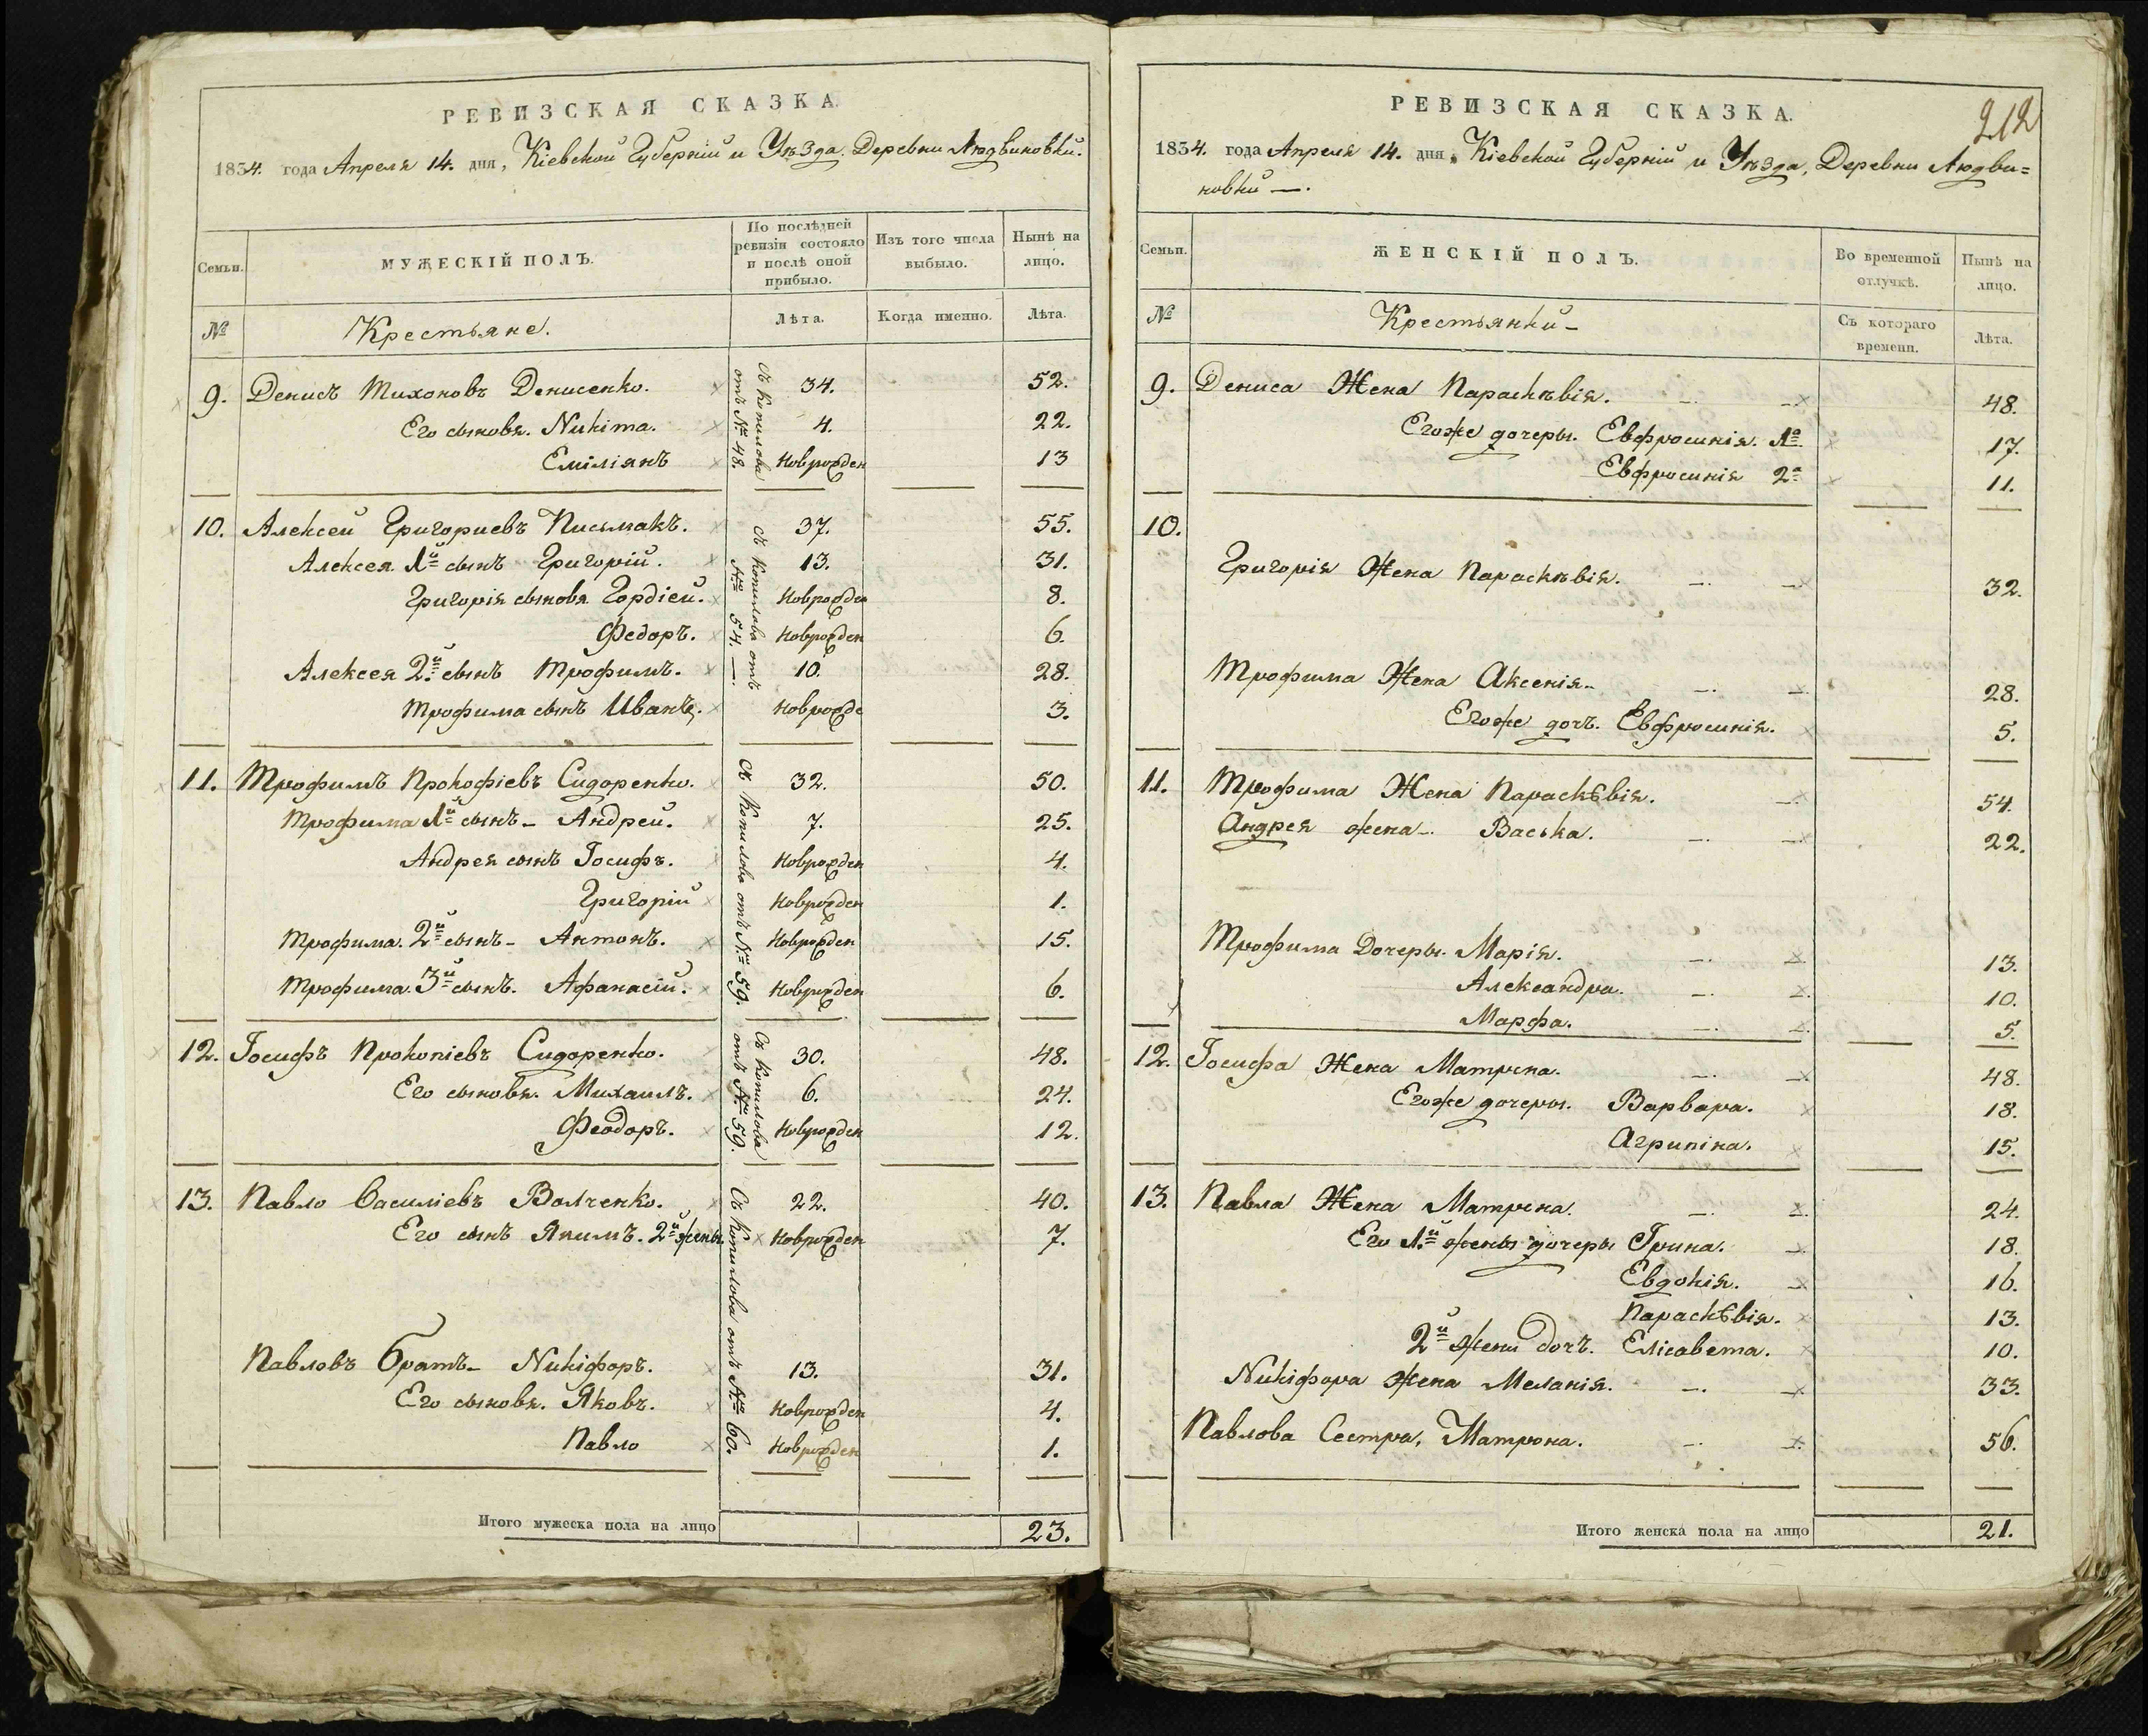 РЕВИЗСКАЯ СКАЗКА.
1834. года Апреля 14. дня, Кіевской Губерніи и Уѣзда. Деревни Людвиновки.
Семьи.
МУЖЕСКІЙ ПОЛЪ.
По послѣдней ревизіи состояло и послѣ оной прибыло.
Изъ того числа выбыло.
Нынѣ на лицо.
№
Крестьяне.
Лѣта.
Когда именно.
Лѣта.
9. Денисъ Тихоновъ Денисенко. 34. 52.
Его сыновя. Никита. 4. 22.
Еміліянъ новрожден 13
съ Копилова отъ № 48.
10. Алексей Григориевъ Письмакъ. 37. 55.
Алексея 1й сынъ Григорій. 13. 31.
Григорія сыновя Гордіей. новрожден 8.
Федоръ. новрожден 6.
Алексея 2й сынъ Трофимъ. 10. 28.
Трофима сынъ Иванъ. новрожде 3.
съ Копилова отъ № 54. —
11. Трофимъ Прокофіевъ Сидоренко. 32. 50.
Трофима 1й сынъ - Андрей. 7. 25.
Андрея сынъ Іосифъ. новрожден 4.
Григорій новрожден 1.
Трофима. 2й сынъ - Антонъ. новрожден 15.
Трофима. 3й сынъ. Афанасій. новрожден 6.
съ Копилова отъ № 59.
12. Іосифъ Прокопіевъ Сидоренко. 30. 48.
Его сыновя. Михаилъ. 6. 24.
Феодоръ. новрожден 12.
съ Копилова отъ № 59.
13. Павло Василіевъ Волченко. 22. 40.
Его сынъ Якимъ. 2й жены новрожден 7.
Павловъ братъ - Никіфоръ. 13. 31.
Его сыновя. Яковъ. новрожден 4.
Павло новрожден 1.
Съ Копилова отъ № 60.
Итого мужеска пола на лицо 23.
212
РЕВИЗСКАЯ СКАЗКА.
1834. года Апреля 14. дня, Кіевской Губерніи и Уѣзда, Деревни Людви=
новки —.
Семьи.
ЖЕНСКІЙ ПОЛЪ.
Во временной отлучкѣ.
Нынѣ на лицо.
№
Крестьянки -
Съ котораго времени.
Лѣта.
9. Дениса Жена Параскѣвія. 48.
Егоже дочеры. Евфросинія. 1а 17.
Евфросинія 2а 11.
10.
Григорія Жена Параскѣвія. 32.
Трофима Жена Аксенія. 28.
Егоже дочъ. Евфросинія. 5.
11. Трофима Жена Параскѣвія. 54.
Андрея жена - Васька. 22.
Трофима Дочеры. Марія. 13.
Александра. 10.
Марфа. 5.
12. Іосифа Жена Матрена. 48.
Егоже дочеры. Варвара. 18.
Агрипіна. 15.
13. Павла Жена Матрена. 24.
Его 1й жены дочеры Ірина. 18.
Евдокія. 16.
Параскѣвія. 13.
2й жены дочъ. Елісавета. 10.
Никіфора жена Меланія. 33.
Павлова Сестра, Матрона. 56.
Итого женска пола на лицо 21.